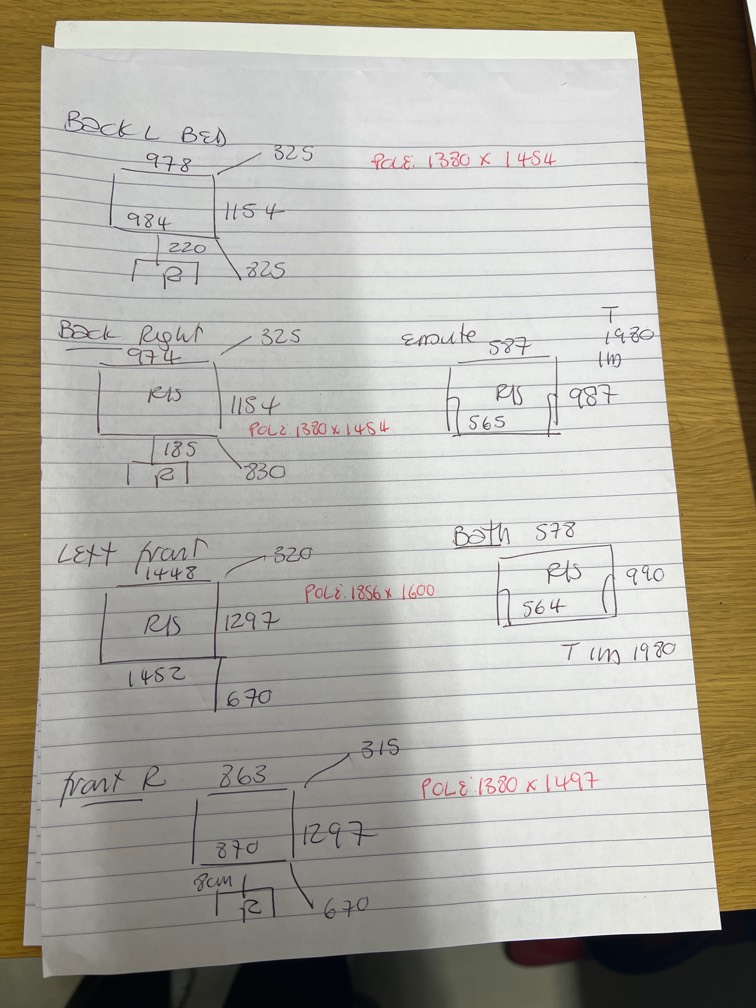 Back L BED
978
325
POLE. 1380 x 1454
984
1154
220
R
825
Back Right
974
325
R/S
1154
POLE 1380 x 1454
185
R
830
Ensuite
587
T
1980
1m
R/S
987
565
Left front
1448
320
R/S
1297
POLE. 1856 x 1600
1452
670
Bath 578
R/S
990
564
T 1m 1980
front R
863
315
POLE 1380 x 1497
870
1297
8cm
R
670